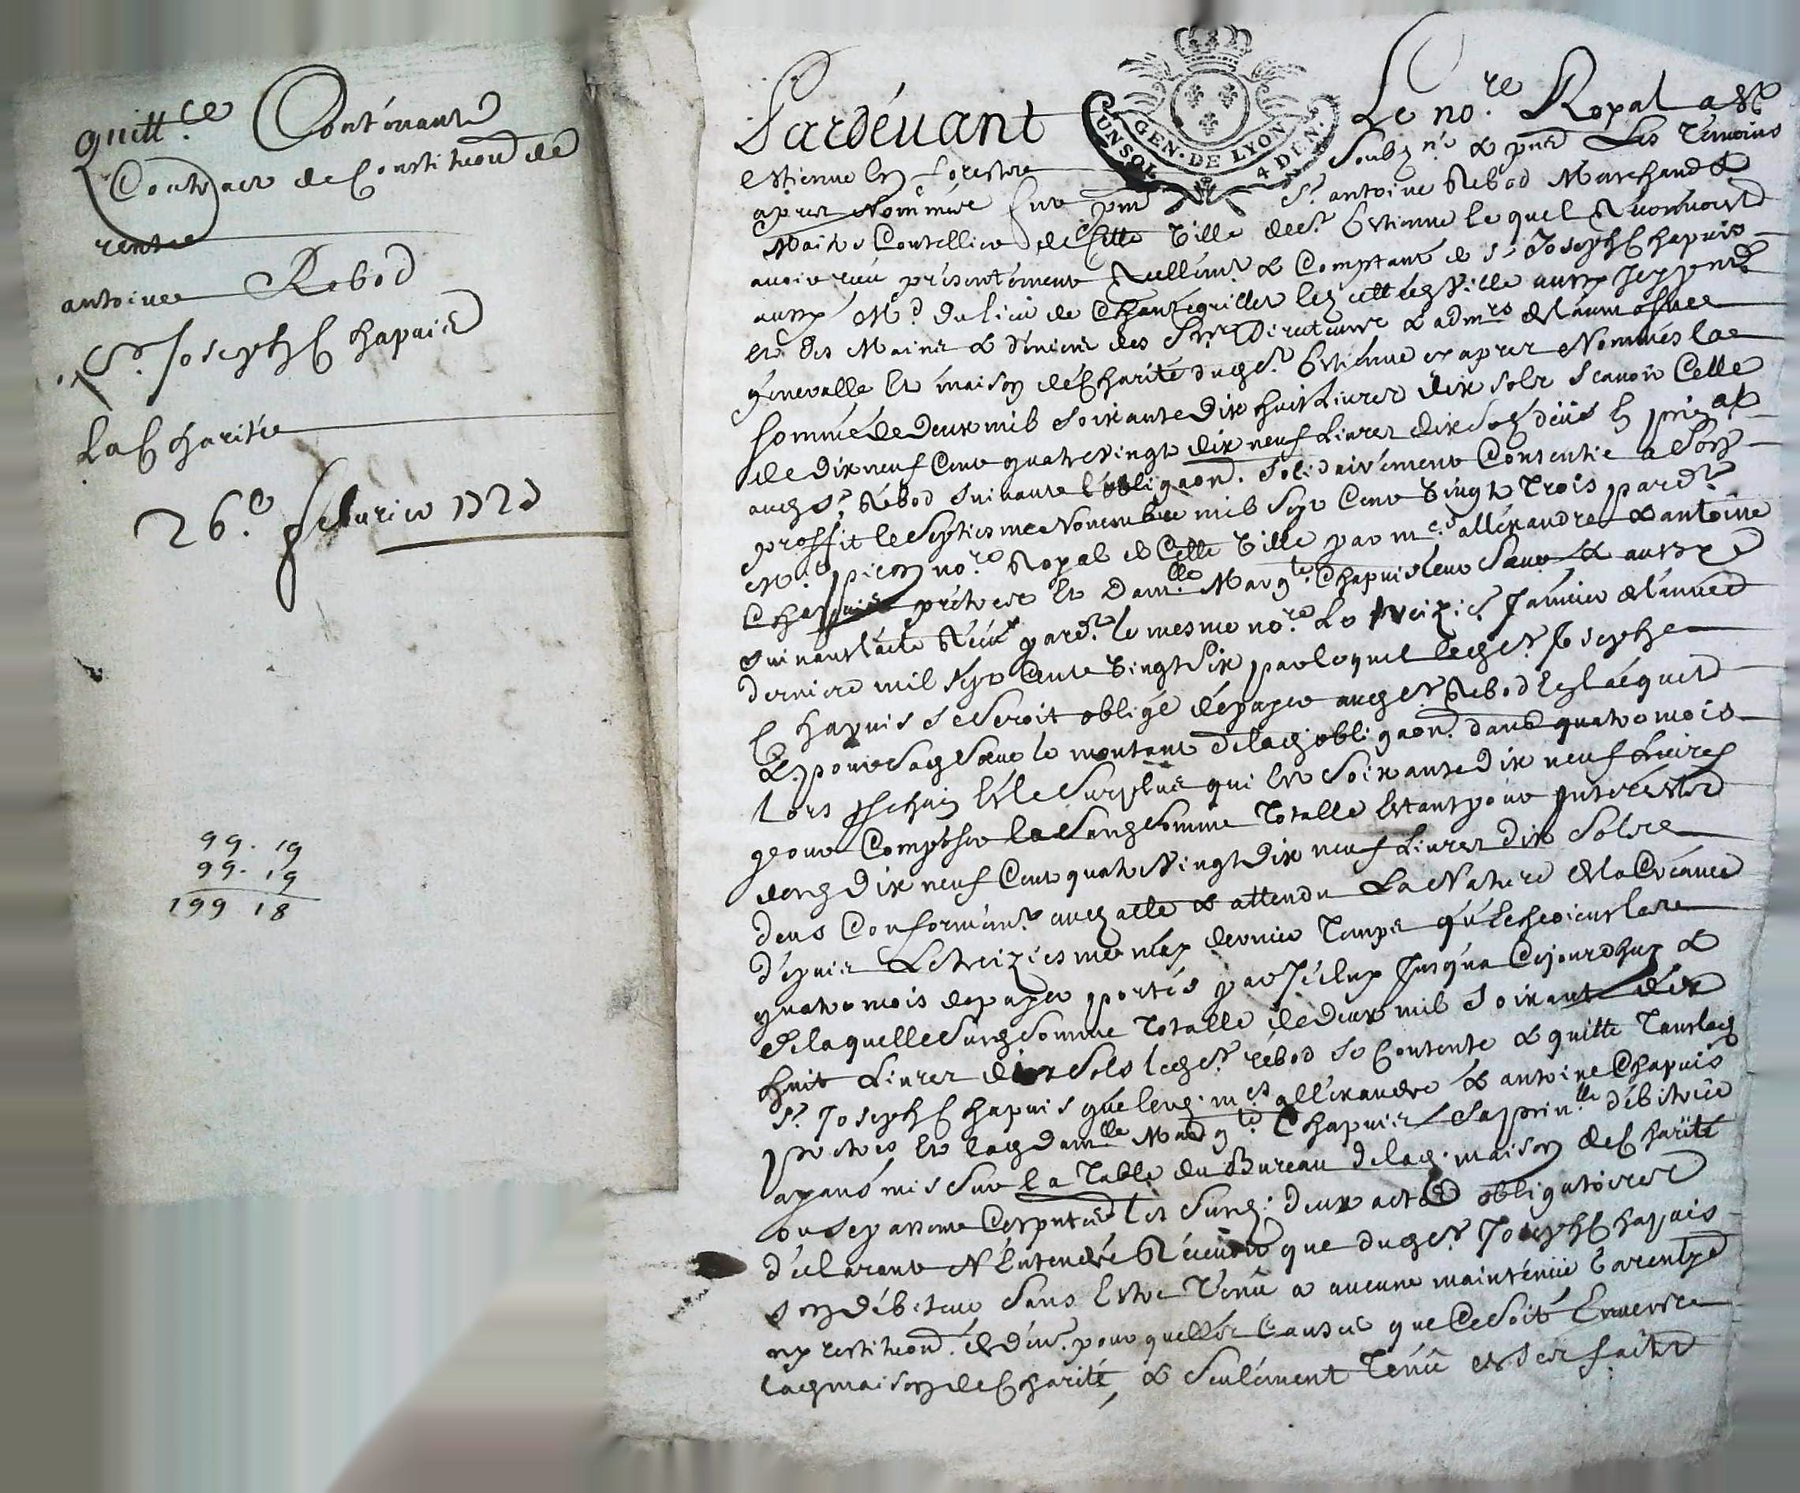 quitt.ce Contenant
Contract de Constitution de
rente
antoine Rebod
Sr. Joseph Chapuis
La Charité
26.e feburier 1727
99. 19
99. 19
199 18
Pardevant Le no.re Royal a St
GEN. DE LYON
UN SOL 4 DEN.
Estienne En forestz Soubz.né & pnt Les Temoins
apres Nommés fut pnt Sr. antoine Rebod Marchand &
Maitre Coutellier de Cette Ville de St. Estienne lequel Reconnoist
avoir reçu présentement Réellemt & Comptant de Sr Joseph Chapuis
aussy Md. du lieu de Chantegrillet lez cette Ville aussy Icy pnt
Et des Mains & deniers des Srs Directeurs & admrs de l'aumosne
géneralle Et maison de Charité dud St. Estienne cy apres Nommés la
somme de deux mil soixante dix huit Livres dix sols scavoir Celle
de dix neuf Cent quatre vingt dix neuf Livres dix sols deüe En prinal
aud Sr. Rebod suivant l'obligaon. solidairement Consentie a Son
proffit le Septiesme Novembre mil Sept Cent Vingt Trois pardt
Me. Picon no.re Royal de Cette Ville par mes. allexandre & antoine
Chapuis prêtres Et Damlle. Margte. Chapuis leur Sœur & aussy
suivant l'acte Reçu pardt. le mesme no.re Le treizie. Janvier de l'année
derniere mil Sept Cent Vingt Six par lequel led Sr. Joseph
Chapuis se seroit obligé de payer aud Sr Rebod En l'acquit
& pour sad Sœur le montant de lad obligaon. dans quatre mois
lors prochain Et le Surplus qui Est soixante dix neuf Livres
pour Composer la susd somme Totalle Estant pour Interests
desd dix neuf Cent quatre Vingt dix neuf Livres dix Sols
deus Conformemt. aud acte & attendu La Nature de la Créance
depuis Le treiziesme may dernier Temps qu'Echeoient les
quatre mois de payer portés par Iceluy Jusqu'a Cejourdhuy &
de laquelle susd somme Totalle de deux mil soixante dix
huit Livres dix Sols led Sr. rebod se Contente & quitte Tant led
Sr. Joseph Chapuis que lesd. mes allexandre & antoine Chapuis
prêtres Et lad damlle Margte Chapuis Sa prinlle débitrice
ayant mis sur la Table du Bureau de lad. maison de Charité
ou Se passent Ces pntes les susd. deux actes obligatoires
déclarant N'Entendre Récevoir que dud Sr Joseph Chapuis
son débiteur sans Estre Tenu a aucune maintenüe Garentye
ny restitution de den. pour quelle Cause que Ce Soit Envers
lad maison de Charité, & seulement Tenu de ses faits